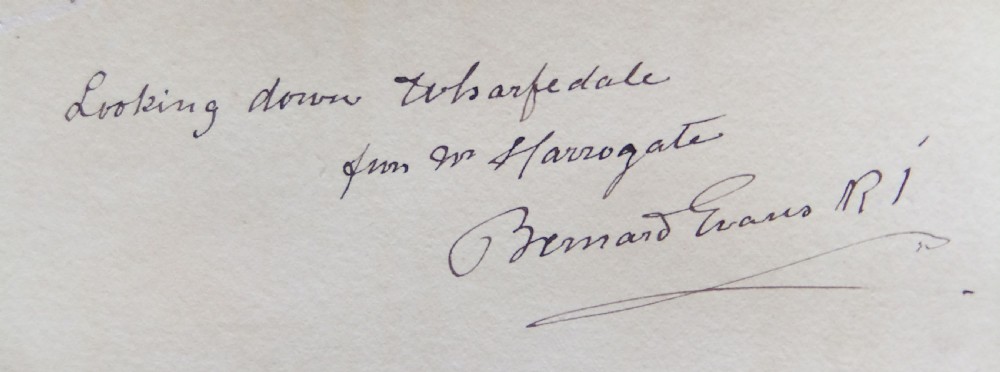 Looking down Wharfedale
from Nr Harrogate
Bernard Evans R I